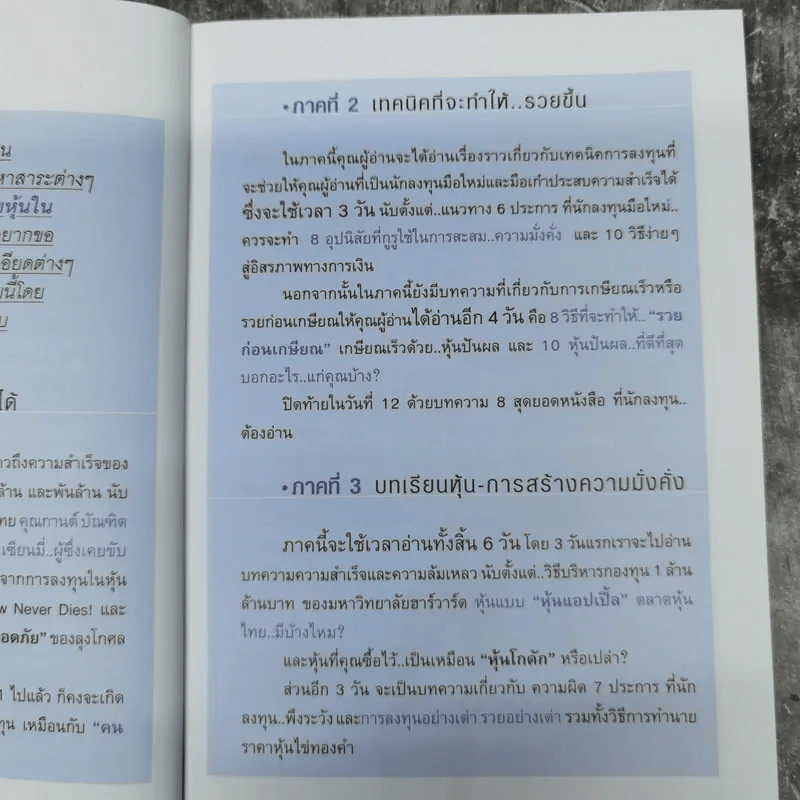 น
หาสาระต่างๆ
หุ้นใน
อยากขอ
อียดต่างๆ
นี้โดย
บ
ได้
วถึงความสำเร็จของ
ล้าน และพันล้าน นับ
ทย คุณกานต์ บัณฑิต
เซียนมี่..ผู้ซึ่งเคยขับ
จากการลงทุนในหุ้น
w Never Dies! และ
อดภัย" ของลุงโกศล
ไปแล้ว ก็คงจะเกิด
ทุน เหมือนกับ "คน
•ภาคที่ 2 เทคนิคที่จะทำให้..รวยขึ้น
ในภาคนี้คุณผู้อ่านจะได้อ่านเรื่องราวเกี่ยวกับเทคนิคการลงทุนที่
จะช่วยให้คุณผู้อ่านที่เป็นนักลงทุนมือใหม่และมือเก๋าประสบความสำเร็จได้
ซึ่งจะใช้เวลา 3 วัน นับตั้งแต่..แนวทาง 6 ประการ ที่นักลงทุนมือใหม่..
ควรจะทำ 8 อุปนิสัยที่กูรูใช้ในการสะสม..ความมั่งคั่ง และ 10 วิธีง่ายๆ
สู่อิสรภาพทางการเงิน
นอกจากนั้นในภาคนี้ยังมีบทความที่เกี่ยวกับการเกษียณเร็วหรือ
รวยก่อนเกษียณให้คุณผู้อ่านได้อ่านอีก 4 วัน คือ 8 วิธีที่จะทำให้.. "รวย
ก่อนเกษียณ" เกษียณเร็วด้วย..หุ้นปันผล และ 10 หุ้นปันผล..ที่ดีที่สุด
บอกอะไร..แก่คุณบ้าง?
ปิดท้ายในวันที่ 12 ด้วยบทความ 8 สุดยอดหนังสือ ที่นักลงทุน..
ต้องอ่าน
•ภาคที่ 3 บทเรียนหุ้น-การสร้างความมั่งคั่ง
ภาคนี้จะใช้เวลาอ่านทั้งสิ้น 6 วัน โดย 3 วันแรกเราจะไปอ่าน
บทความความสำเร็จและความล้มเหลว นับตั้งแต่..วิธีบริหารกองทุน 1 ล้าน
ล้านบาท ของมหาวิทยาลัยฮาร์วาร์ด หุ้นแบบ "หุ้นแอปเปิ้ล" ตลาดหุ้น
ไทย..มีบ้างไหม?
และหุ้นที่คุณซื้อไว้..เป็นเหมือน "หุ้นโกดัก" หรือเปล่า?
ส่วนอีก 3 วัน จะเป็นบทความเกี่ยวกับ ความผิด 7 ประการ ที่นัก
ลงทุน..พึงระวัง และการลงทุนอย่างเต่า รวยอย่างเต่า รวมทั้งวิธีการทำนาย
ราคาหุ้นไข่ทองคำ